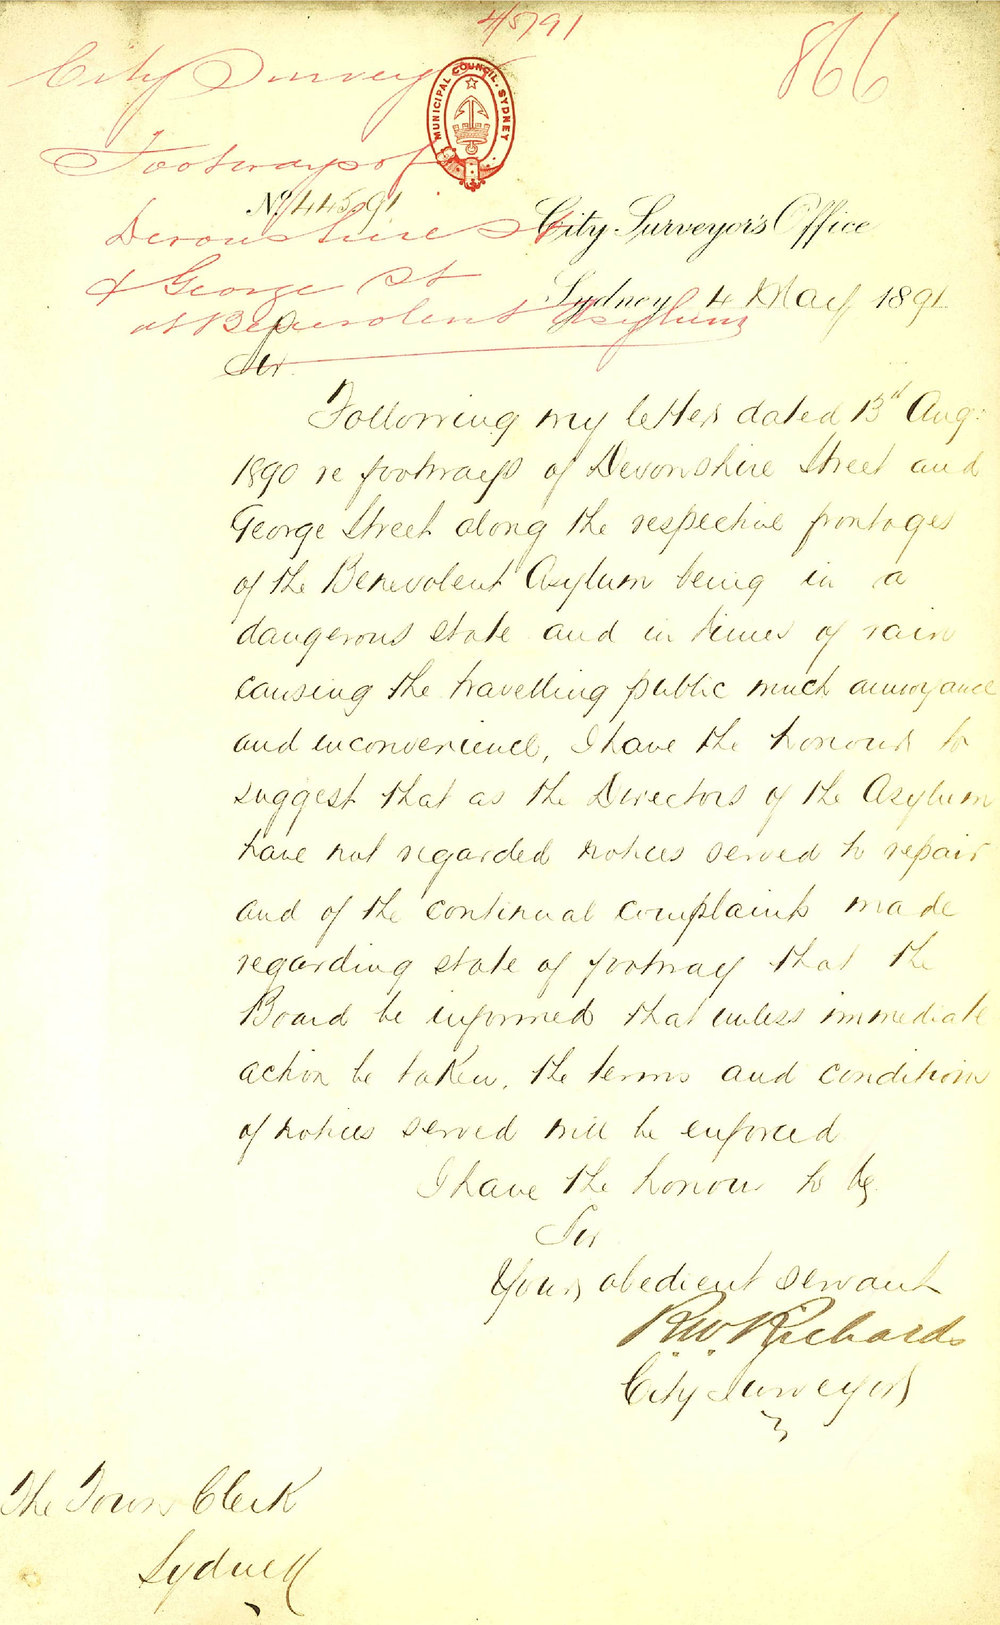 4/5/91
866
City Surveyor
MUNICIPAL COUNCIL. SYDNEY
Footways of
No. 445.91
Devonshire St
City Surveyor's Office
& George St
Sydney 4 May 1891
at Benevolent Asylum
Sir
Following my letter dated 13th Aug:
1890 re footways of Devonshire Street and
George Street along the respective frontages
of the Benevolent Asylum being in a
dangerous state and in times of rain
causing the travelling public much annoyance
and inconvenience, I have the honour to
suggest that as the Directors of the Asylum
have not regarded notices served to repair
and of the continual complaints made
regarding state of footway that the
Board be informed that unless immediate
action be taken, the terms and conditions
of notices served will be enforced
I have the honour to be
Sir
Your obedient servant
R.W. Richards
City Surveyor
The Town Clerk
Sydney